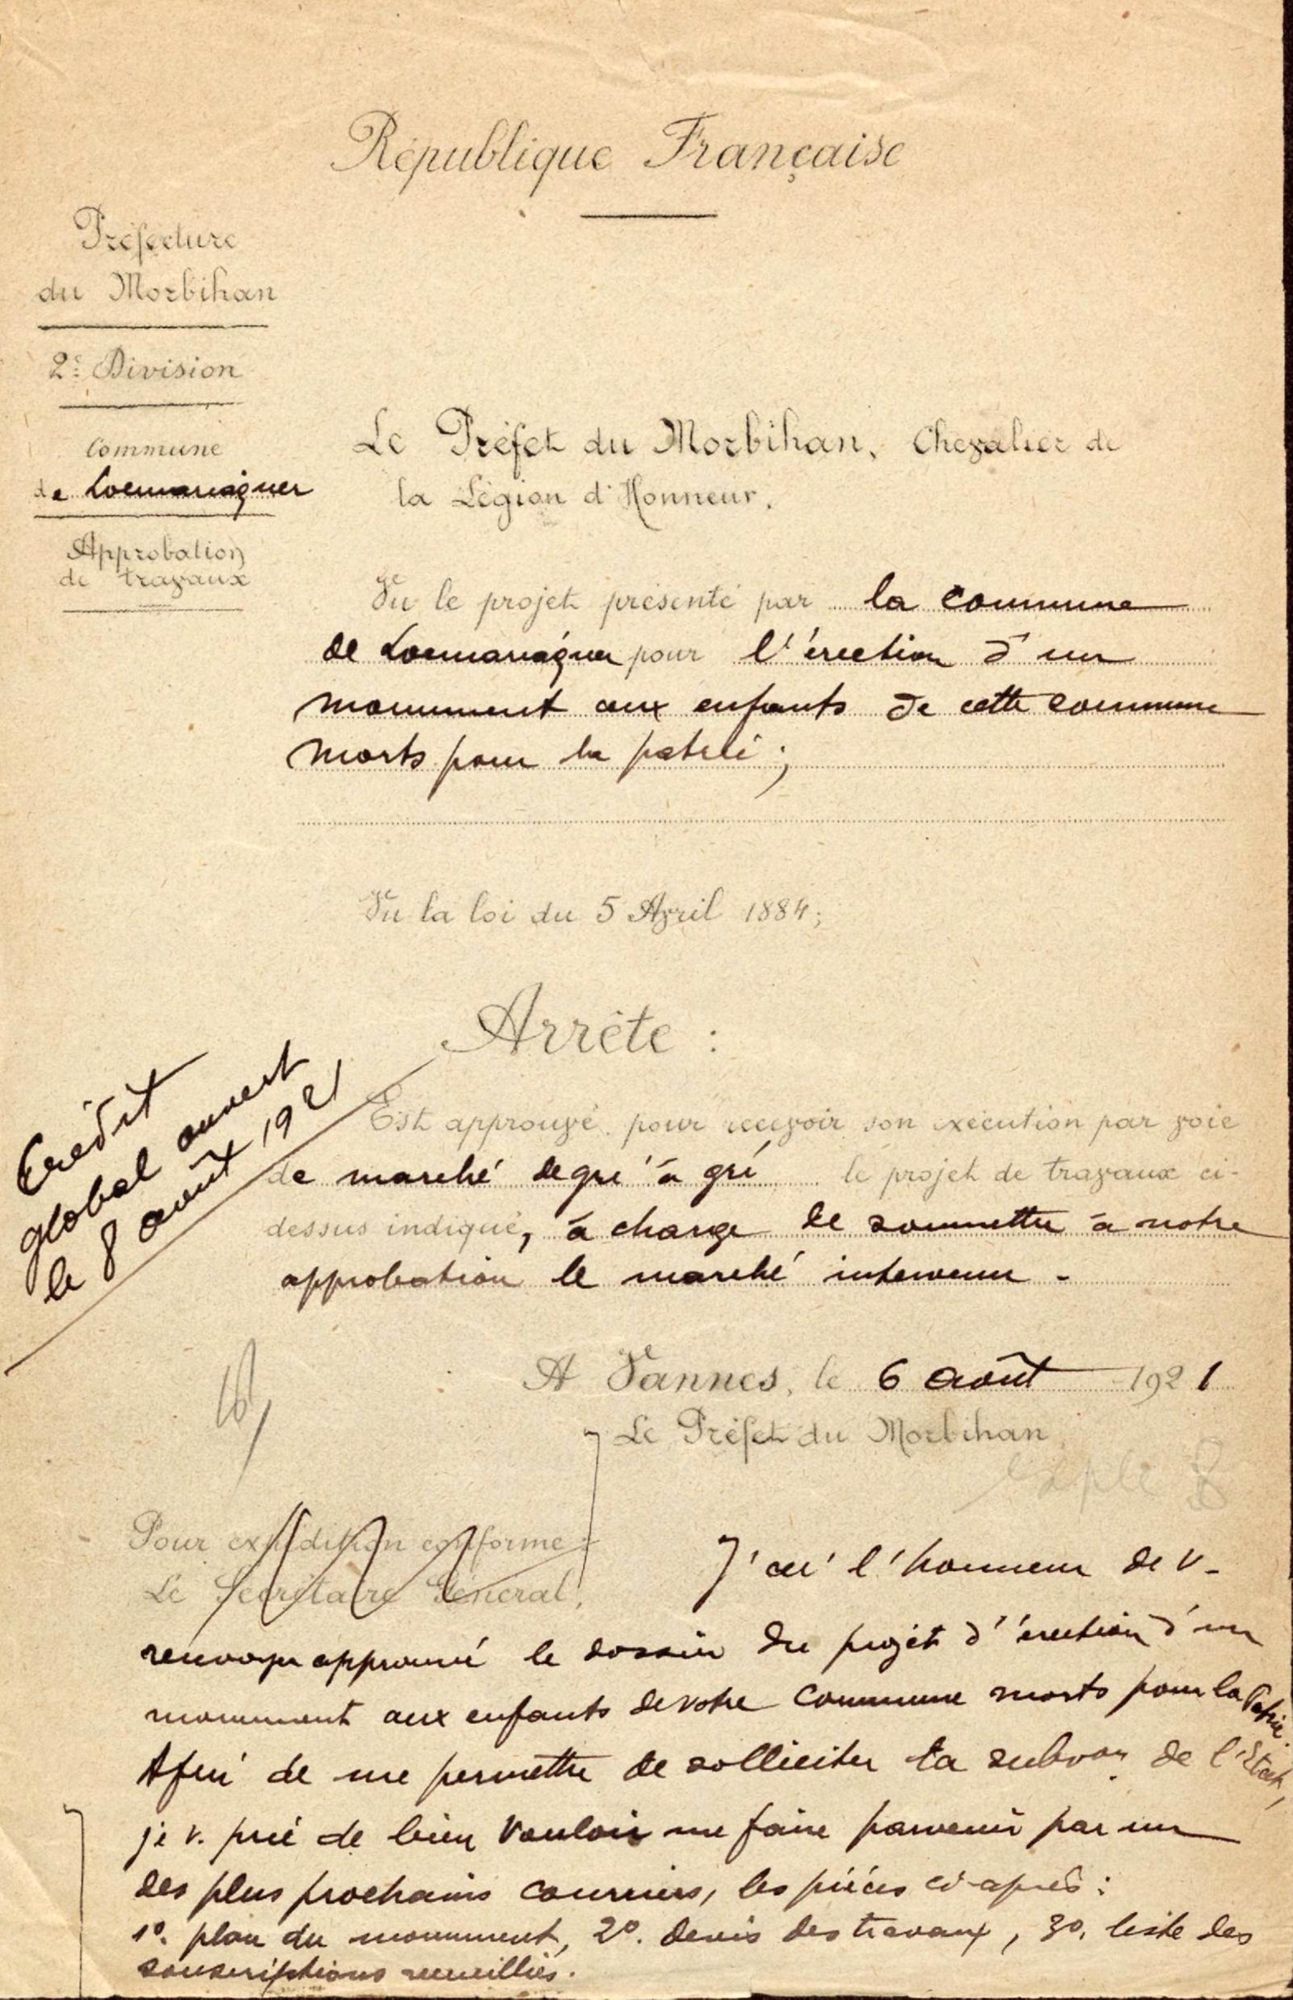 République Française
Préfecture
du Morbihan
2e Division
Commune
de Locmariaquer
Approbation
de travaux
Le Préfet du Morbihan, Chevalier de
la Légion d'Honneur,
Vu le projet présenté par la commune
de Locmariaquer pour l'érection d'un
monument aux enfants de cette commune
morts pour la patrie ;
Vu la loi du 5 Avril 1884;
Arrête :
Est approuvé, pour recevoir son exécution par voie
de marché de gré à gré le projet de travaux ci-
dessus indiqué, à charge de soumettre à notre
approbation le marché intervenu -
Crédit
global ouvert
le 8 août 1921
A Vannes, le 6 août 1921
Le Préfet du Morbihan
Pour expédition conforme :
Le Secrétaire Général,
J'ai l'honneur de v-
renvoyer approuvé le dossier du projet d'érection d'un
monument aux enfants de votre commune morts pour la Patrie.
Afin de me permettre de solliciter la subvon de l'Etat,
je v. prie de bien vouloir me faire parvenir par un
des plus prochains courriers, les pièces ci-après :
1º. plan du monument, 2º. devis des travaux, 3º. liste des
souscriptions recueillies.